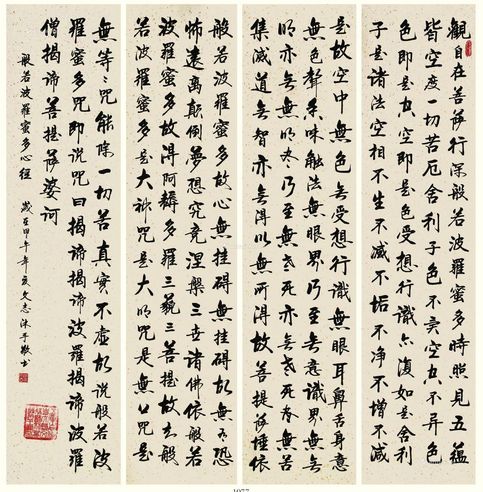 觀自在菩薩行深般若波羅蜜多時照見五蘊
皆空度一切苦厄舍利子色不異空空不异色
色即是空空即是色受想行識亦復如是舍利
子是諸法空相不生不滅不垢不淨不增不減
是故空中無色无受想行識無眼耳鼻舌身意
無色聲香味觸法無眼界乃至无意識界無无
明亦无無明盡乃至無老死亦无老死盡無苦
集滅道无智亦無得以無所得故菩提薩埵依
般若波羅蜜多故心無挂礙無挂礙故無有恐
怖遠離顛倒夢想究竟涅槃三世諸佛依般若
波羅蜜多故得阿耨多羅三藐三菩提故知般
若波羅蜜多是大神咒是大明咒是無上咒是
無等〻咒能除一切苦真實不虛故說般若波
羅蜜多咒即說咒曰揭諦揭諦波羅揭諦波羅
僧揭諦菩提薩婆訶
般若波羅蜜多心經 歲在甲午年文志沐手敬書
1077